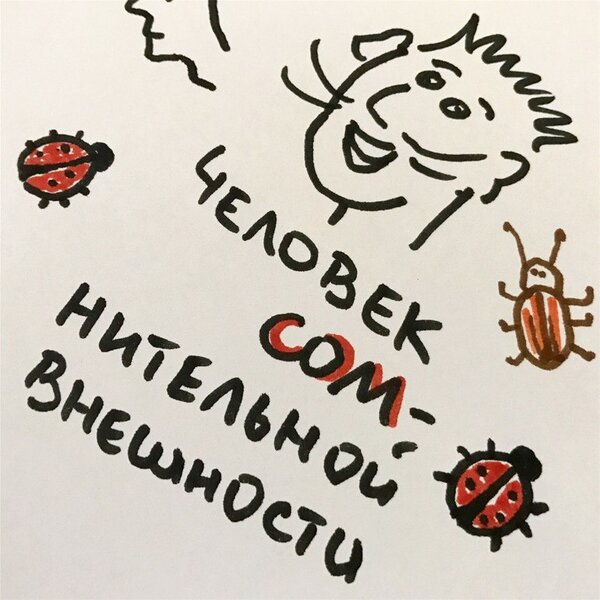 ЧЕЛОВЕК
СОМ-
НИТЕЛЬНОЙ
ВНЕШНОСТИ